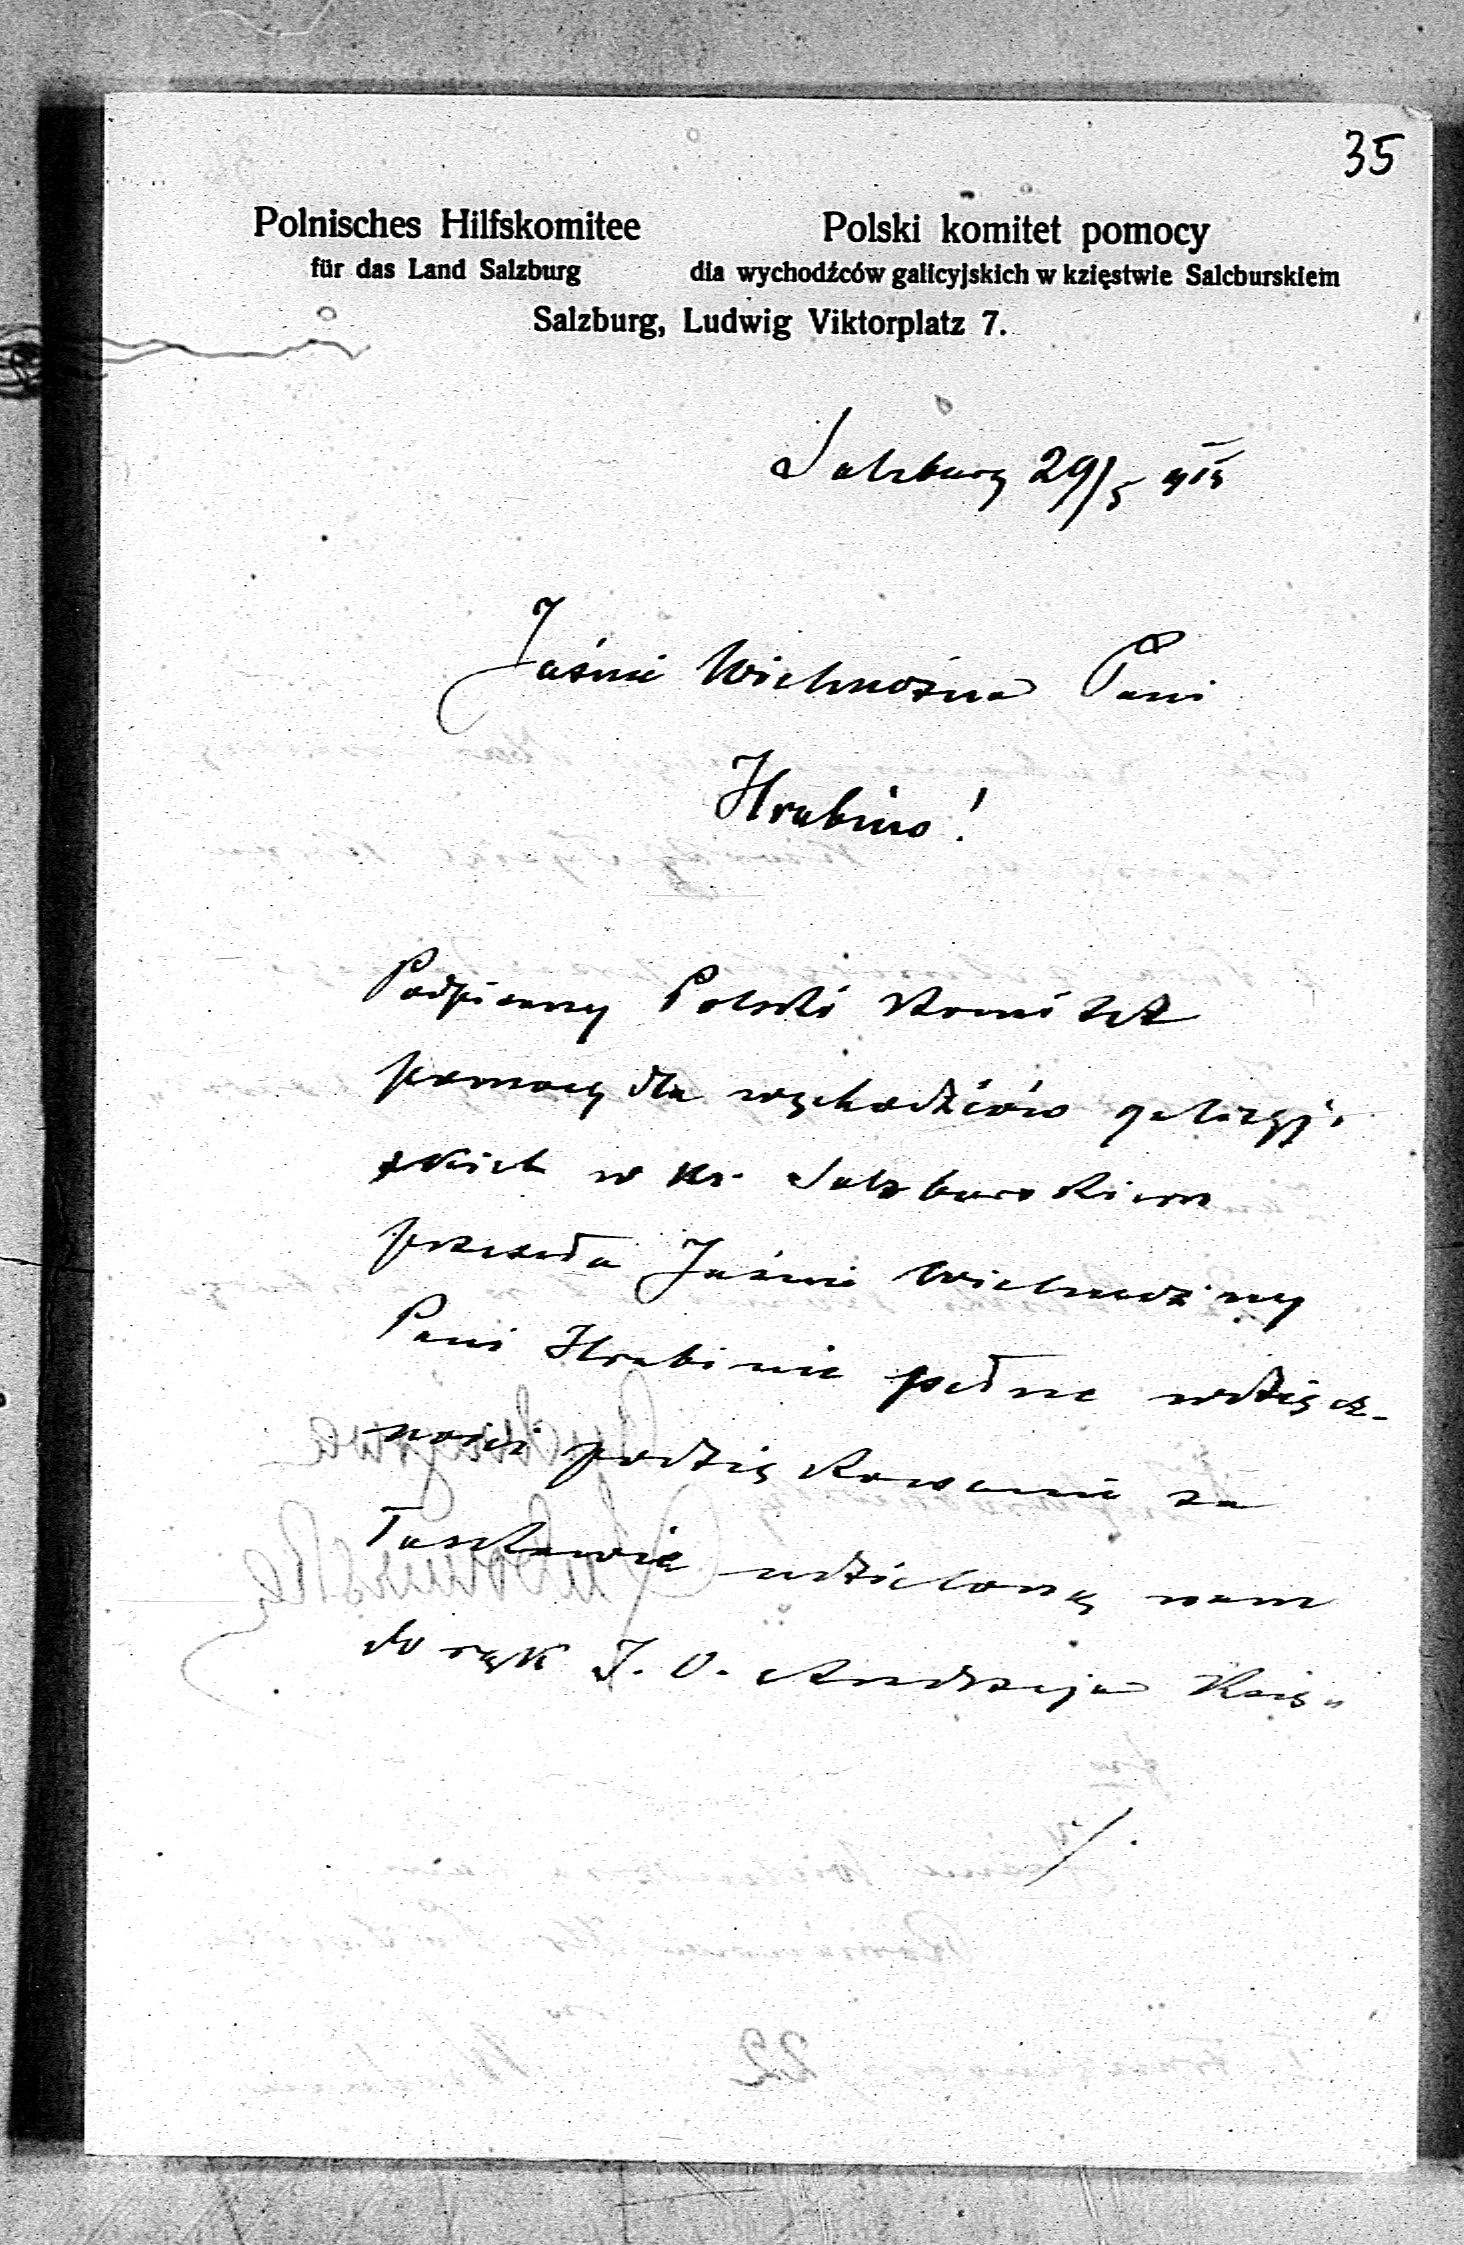 35
Polnisches Hilfskomitee
für das Land Salzburg
Polski komitet pomocy
dla wychodźców galicyjskich w kzięstwie Salcburskiem
Salzburg, Ludwig Viktorplatz 7.
Salzburg 29/5 915
Jaśnie Wielmożna Pani
Hrabino!
Podpisany Polski Komitet
pomocy dla wychodźców galicyj-
skich w Ks. Salzburskiem
przesyła Jaśnie Wielmożnej
Pani Hrabinie pełne wdzięcz-
ności podziękowanie za
łaskawie udzieloną nam
do rąk J. O. Andrzeja Księ-
/.
22